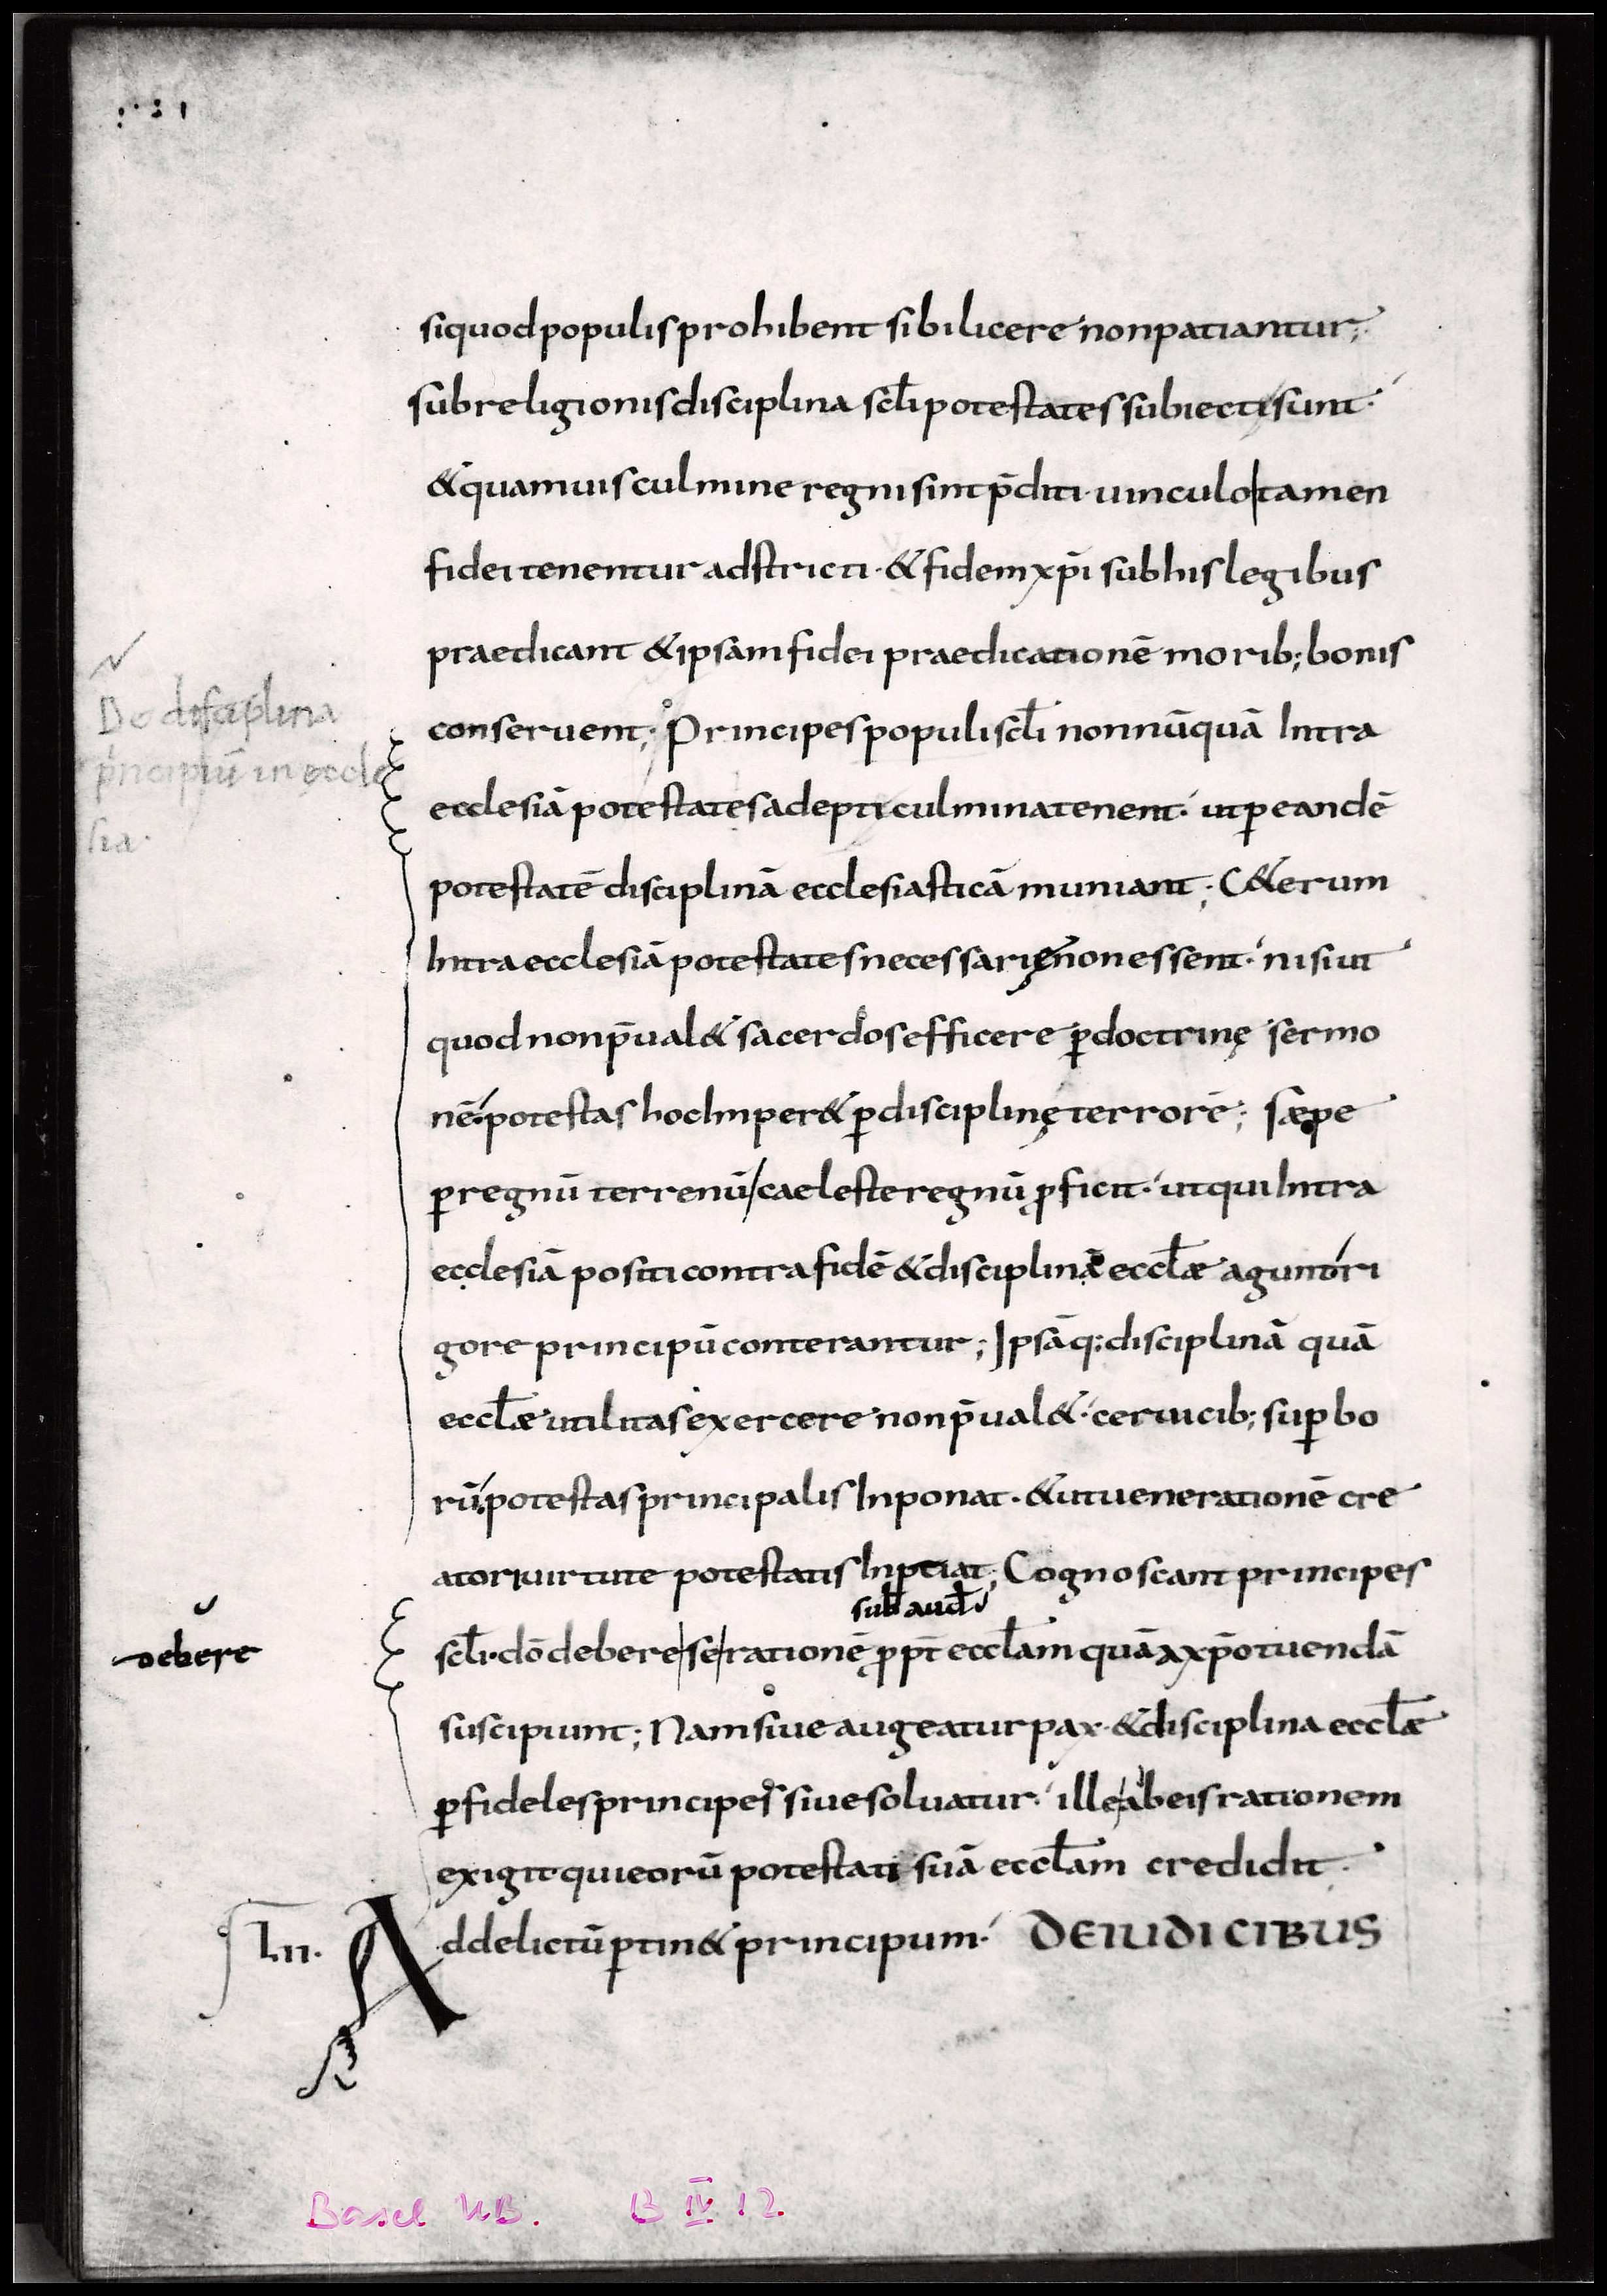 si quod populis prohibent sibi licere non patiantur;
sub religionis disciplina scłi potestates subiecti sunt·
& quamuis culmine regni sint p̄diti· uinculo tamen
fidei tenentur adstricti· & fidem xp̄i sub his legibus
praedicant & ipsam fidei praedicationē morib; bonis
conseruent; Principes populi scłi nonnūquā Intra
ecclesiā potestates adepti culmina tenent· ut ꝑ eandē
potestatē disciplinā ecclesiasticā muniant; C&erum
Intra ecclesiā potestates necessarię non essent· nisi ut
quod non p̄ual& sacerdos efficere ꝑ doctrinę sermo
nē· potestas hoc Imper& ꝑ disciplinę terrorē; sæpe
ꝑ regnū terrenū/ caeleste regnū ꝓficit· ut qui Intra
ecclesiā positi contra fidē & disciplinā eccłæ agunt ri
gore principū conterantur; Ipsāq; disciplinā quā
eccłæ utilitas exercere non p̄ual&· ceruicib; suꝑbo
rū· potestas principalis Inponat· & ut uenerationē cre
atori uirtute potestatis Inꝑtiat; Cognoscant principes
sub aud̄
scłi· dō debere se rationē ꝓpt̄ eccłam quā a xp̄o tuendā
suscipiunt; Nam siue augeatur pax· & disciplina eccłæ
ꝑ fideles principes siue soluatur· ille ab eis rationem
exigit qui eorū potestati suā eccłam credidit·
Ad delictū ꝑtin& principum· DE IUDICIBUS
De disciplina
p̍ncipiū in eccle
sia·
debere
l.ii.
Basel UB. B IV 12.